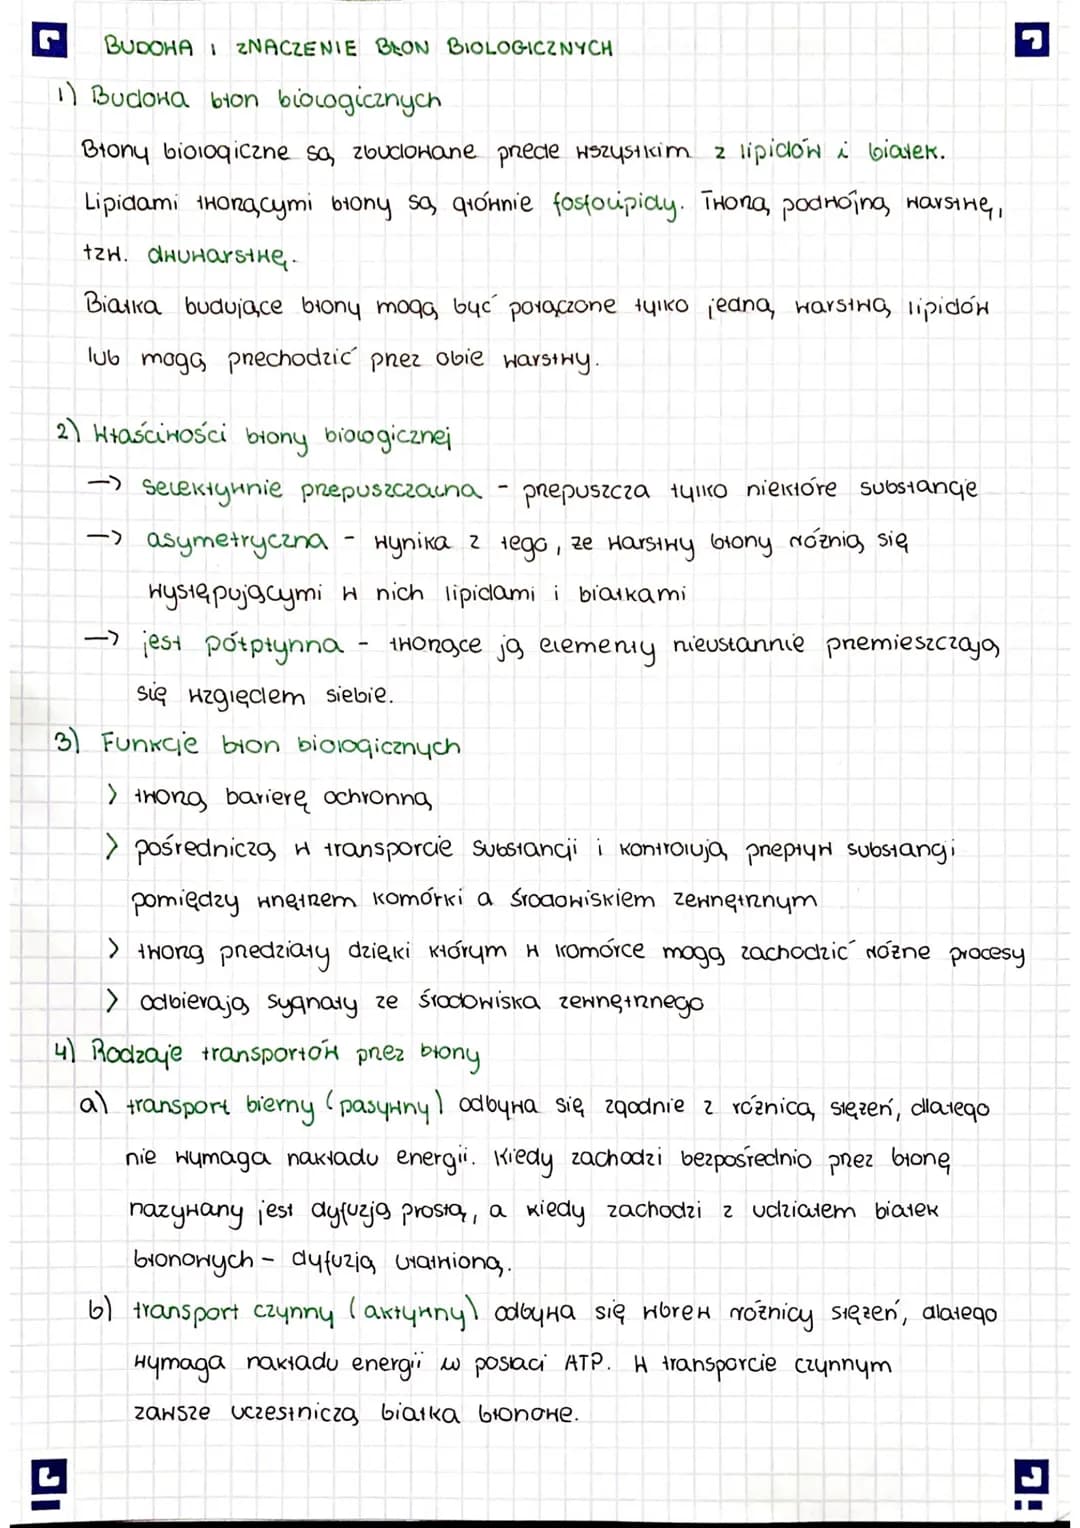 BUDOWA I ZNACZENIE BŁON BIOLOGICZNYCH
1) Budowa błon biologicznych
Błony biologiczne są zbudowane przede wszystkim z lipidów i białek.
Lipidami tworzącymi błony są głównie fosfolipidy. Tworzą podwójną warstwę,
tzw. dwuwarstwę.
Białka budujące błony mogą być połączone tylko jedną warstwą lipidów
lub mogą przechodzić przez obie warstwy.
2) Właściwości błony biologicznej
→ selektywnie przepuszczalna - przepuszcza tylko niektóre substancje
→ asymetryczna - wynika z tego, że warstwy błony różnią się
występującymi w nich lipidami i białkami
→ jest półpłynna - tworzące ją elementy nieustannie przemieszczają
się względem siebie.
3) Funkcje błon biologicznych
> tworzą barierę ochronną
> pośredniczą w transporcie substancji i kontrolują przepływ substancji
pomiędzy wnętrzem komórki a środowiskiem zewnętrznym
> tworzą przedziały dzięki którym w komórce mogą zachodzić różne procesy
> odbierają sygnały ze środowiska zewnętrznego
4) Rodzaje transportów przez błony
a) transport bierny (pasywny) odbywa się zgodnie z różnicą stężeń, dlatego
nie wymaga nakładu energii. Kiedy zachodzi bezpośrednio przez błonę
nazywany jest dyfuzją prostą, a kiedy zachodzi z udziałem białek
błonowych - dyfuzją ułatwioną.
b) transport czynny (aktywny) odbywa się wbrew różnicy stężeń, dlatego
wymaga nakładu energii w postaci ATP. W transporcie czynnym
zawsze uczestniczą białka błonowe.